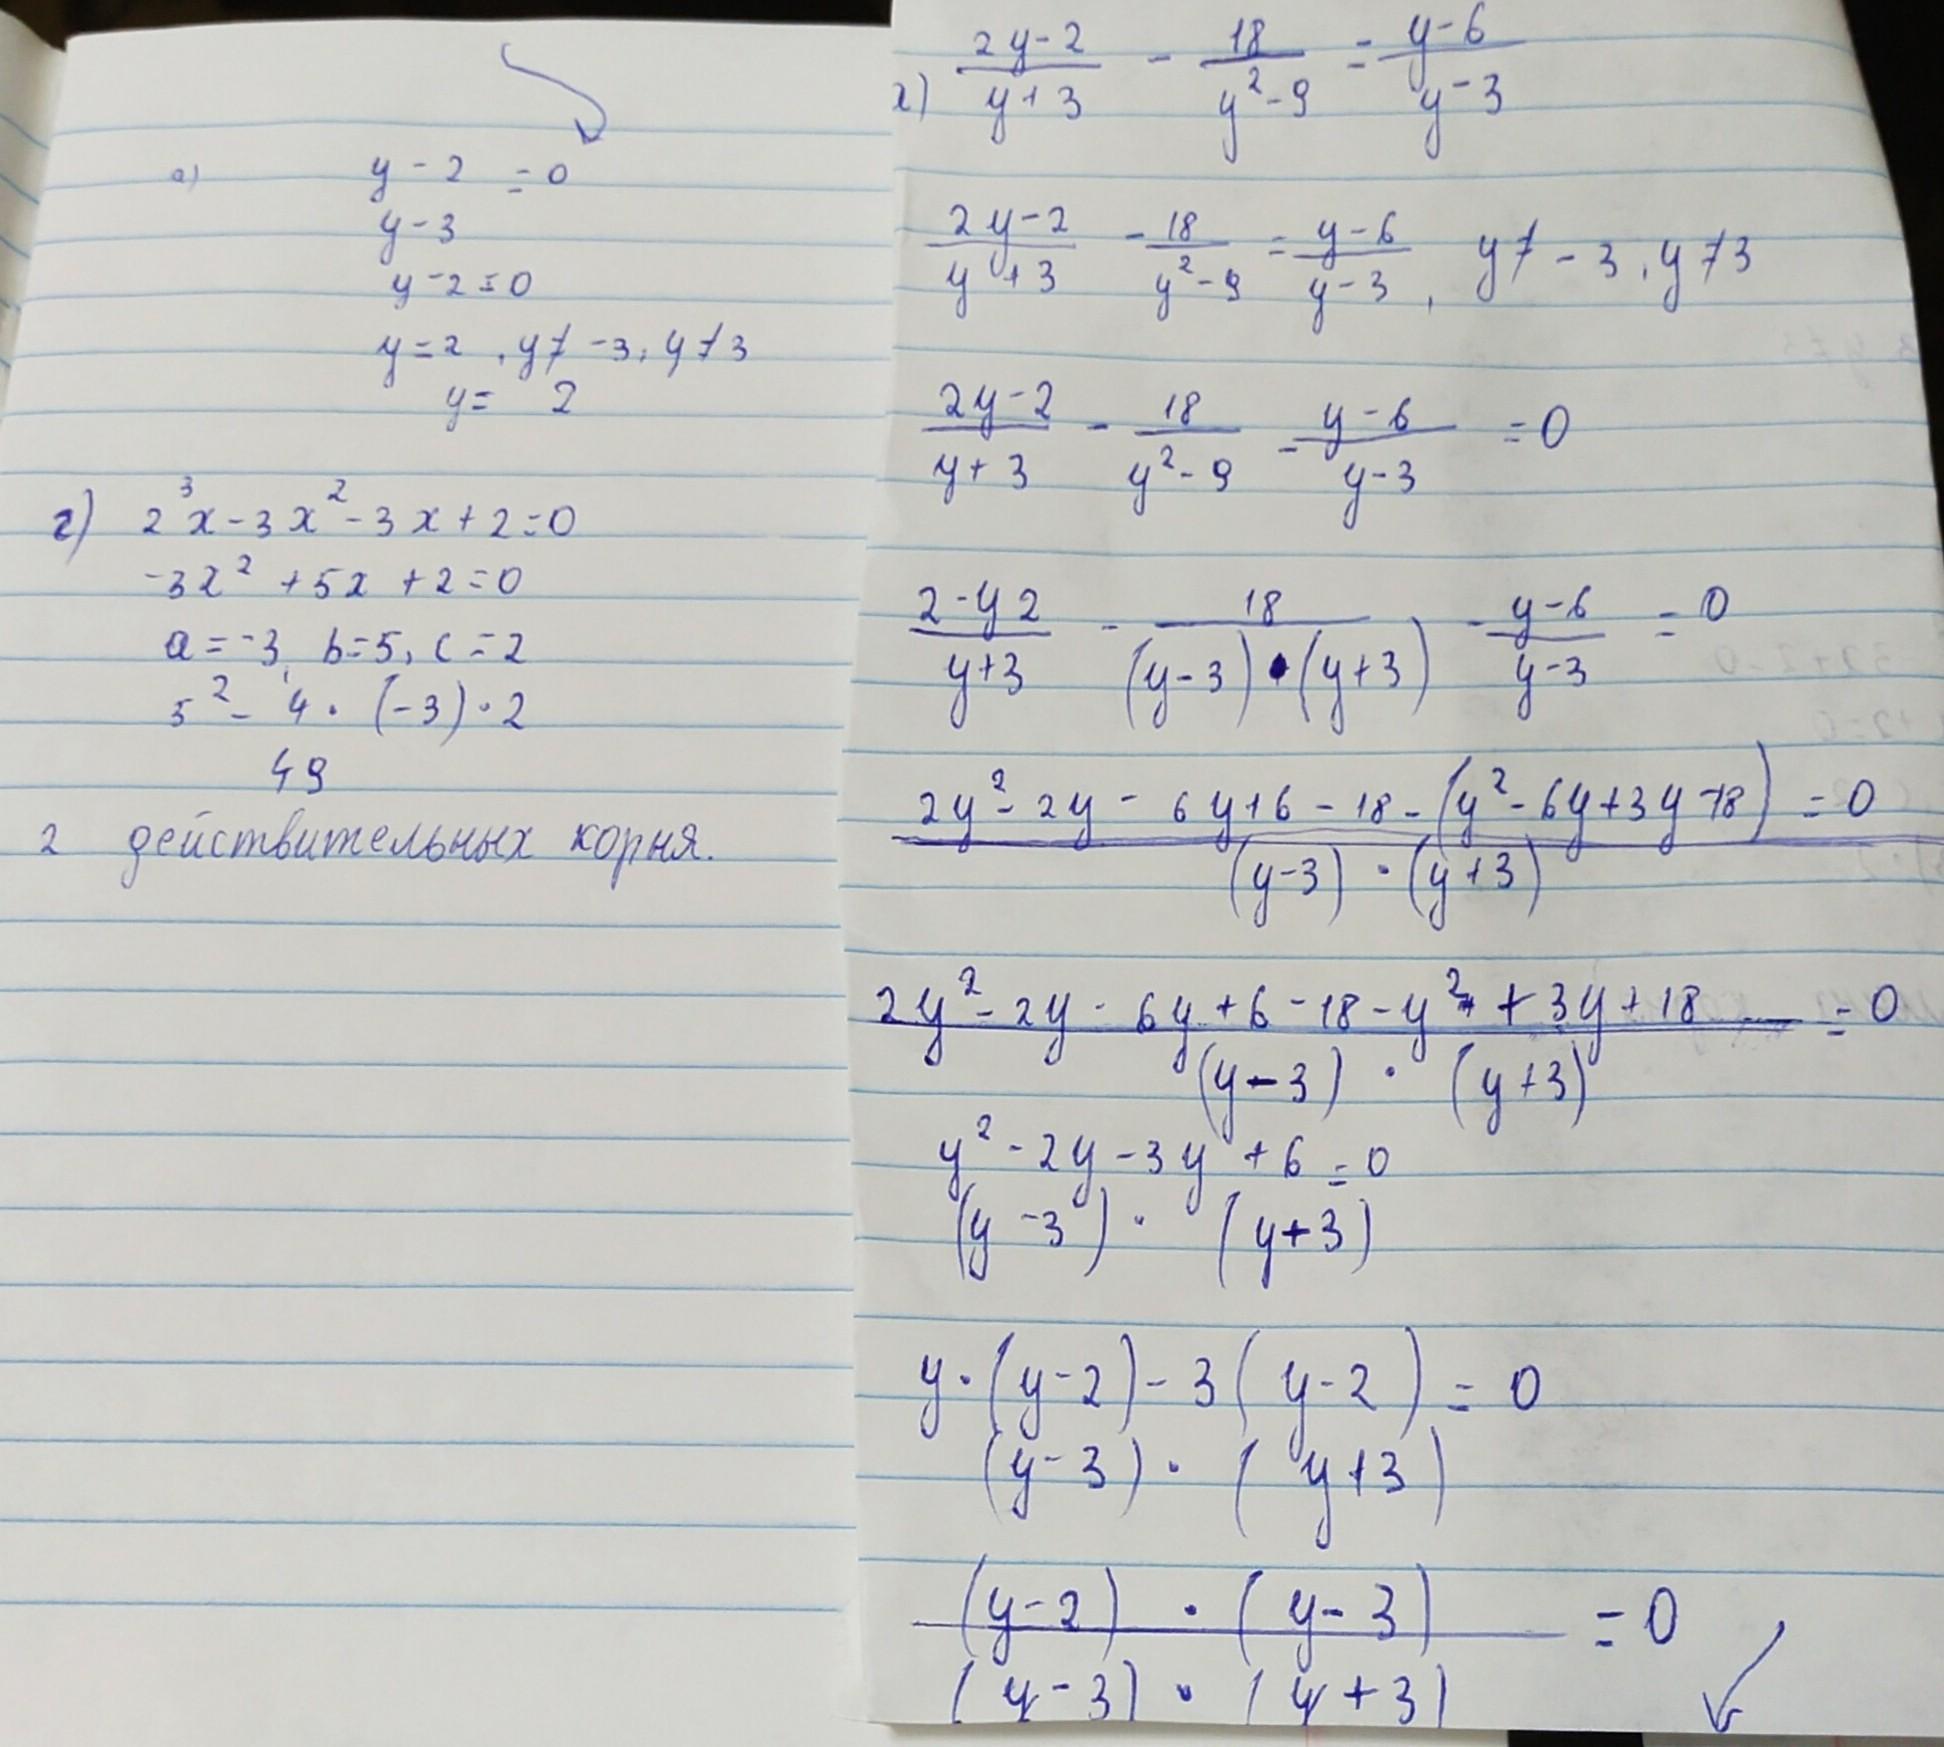 а) y - 2 = 0
y - 3
y - 2 = 0
y = 2, y ≠ -3, y ≠ 3
y = 2
г) 2³x - 3x² - 3x + 2 = 0
-3x² + 5x + 2 = 0
a = -3, b = 5, c = 2
5² - 4 · (-3) · 2
49
2 действительных корня.
2y-2 / y+3 - 18 / y²-9 = y-6 / y-3
2y-2 / y+3 - 18 / y²-9 = y-6 / y-3, y ≠ -3, y ≠ 3
2y-2 / y+3 - 18 / y²-9 - y-6 / y-3 = 0
2-y2 / y+3 - 18 / (y-3)·(y+3) - y-6 / y-3 = 0
2y² - 2y - 6y + 6 - 18 - (y² - 6y + 3y - 18) = 0
(y-3) · (y+3)
2y² - 2y - 6y + 6 - 18 - y² + 3y + 18 = 0
(y-3) · (y+3)
y² - 2y - 3y + 6 = 0
(y-3) · (y+3)
y·(y-2) - 3(y-2) = 0
(y-3) · (y+3)
(y-2) · (y-3) = 0
(y-3) · (y+3)